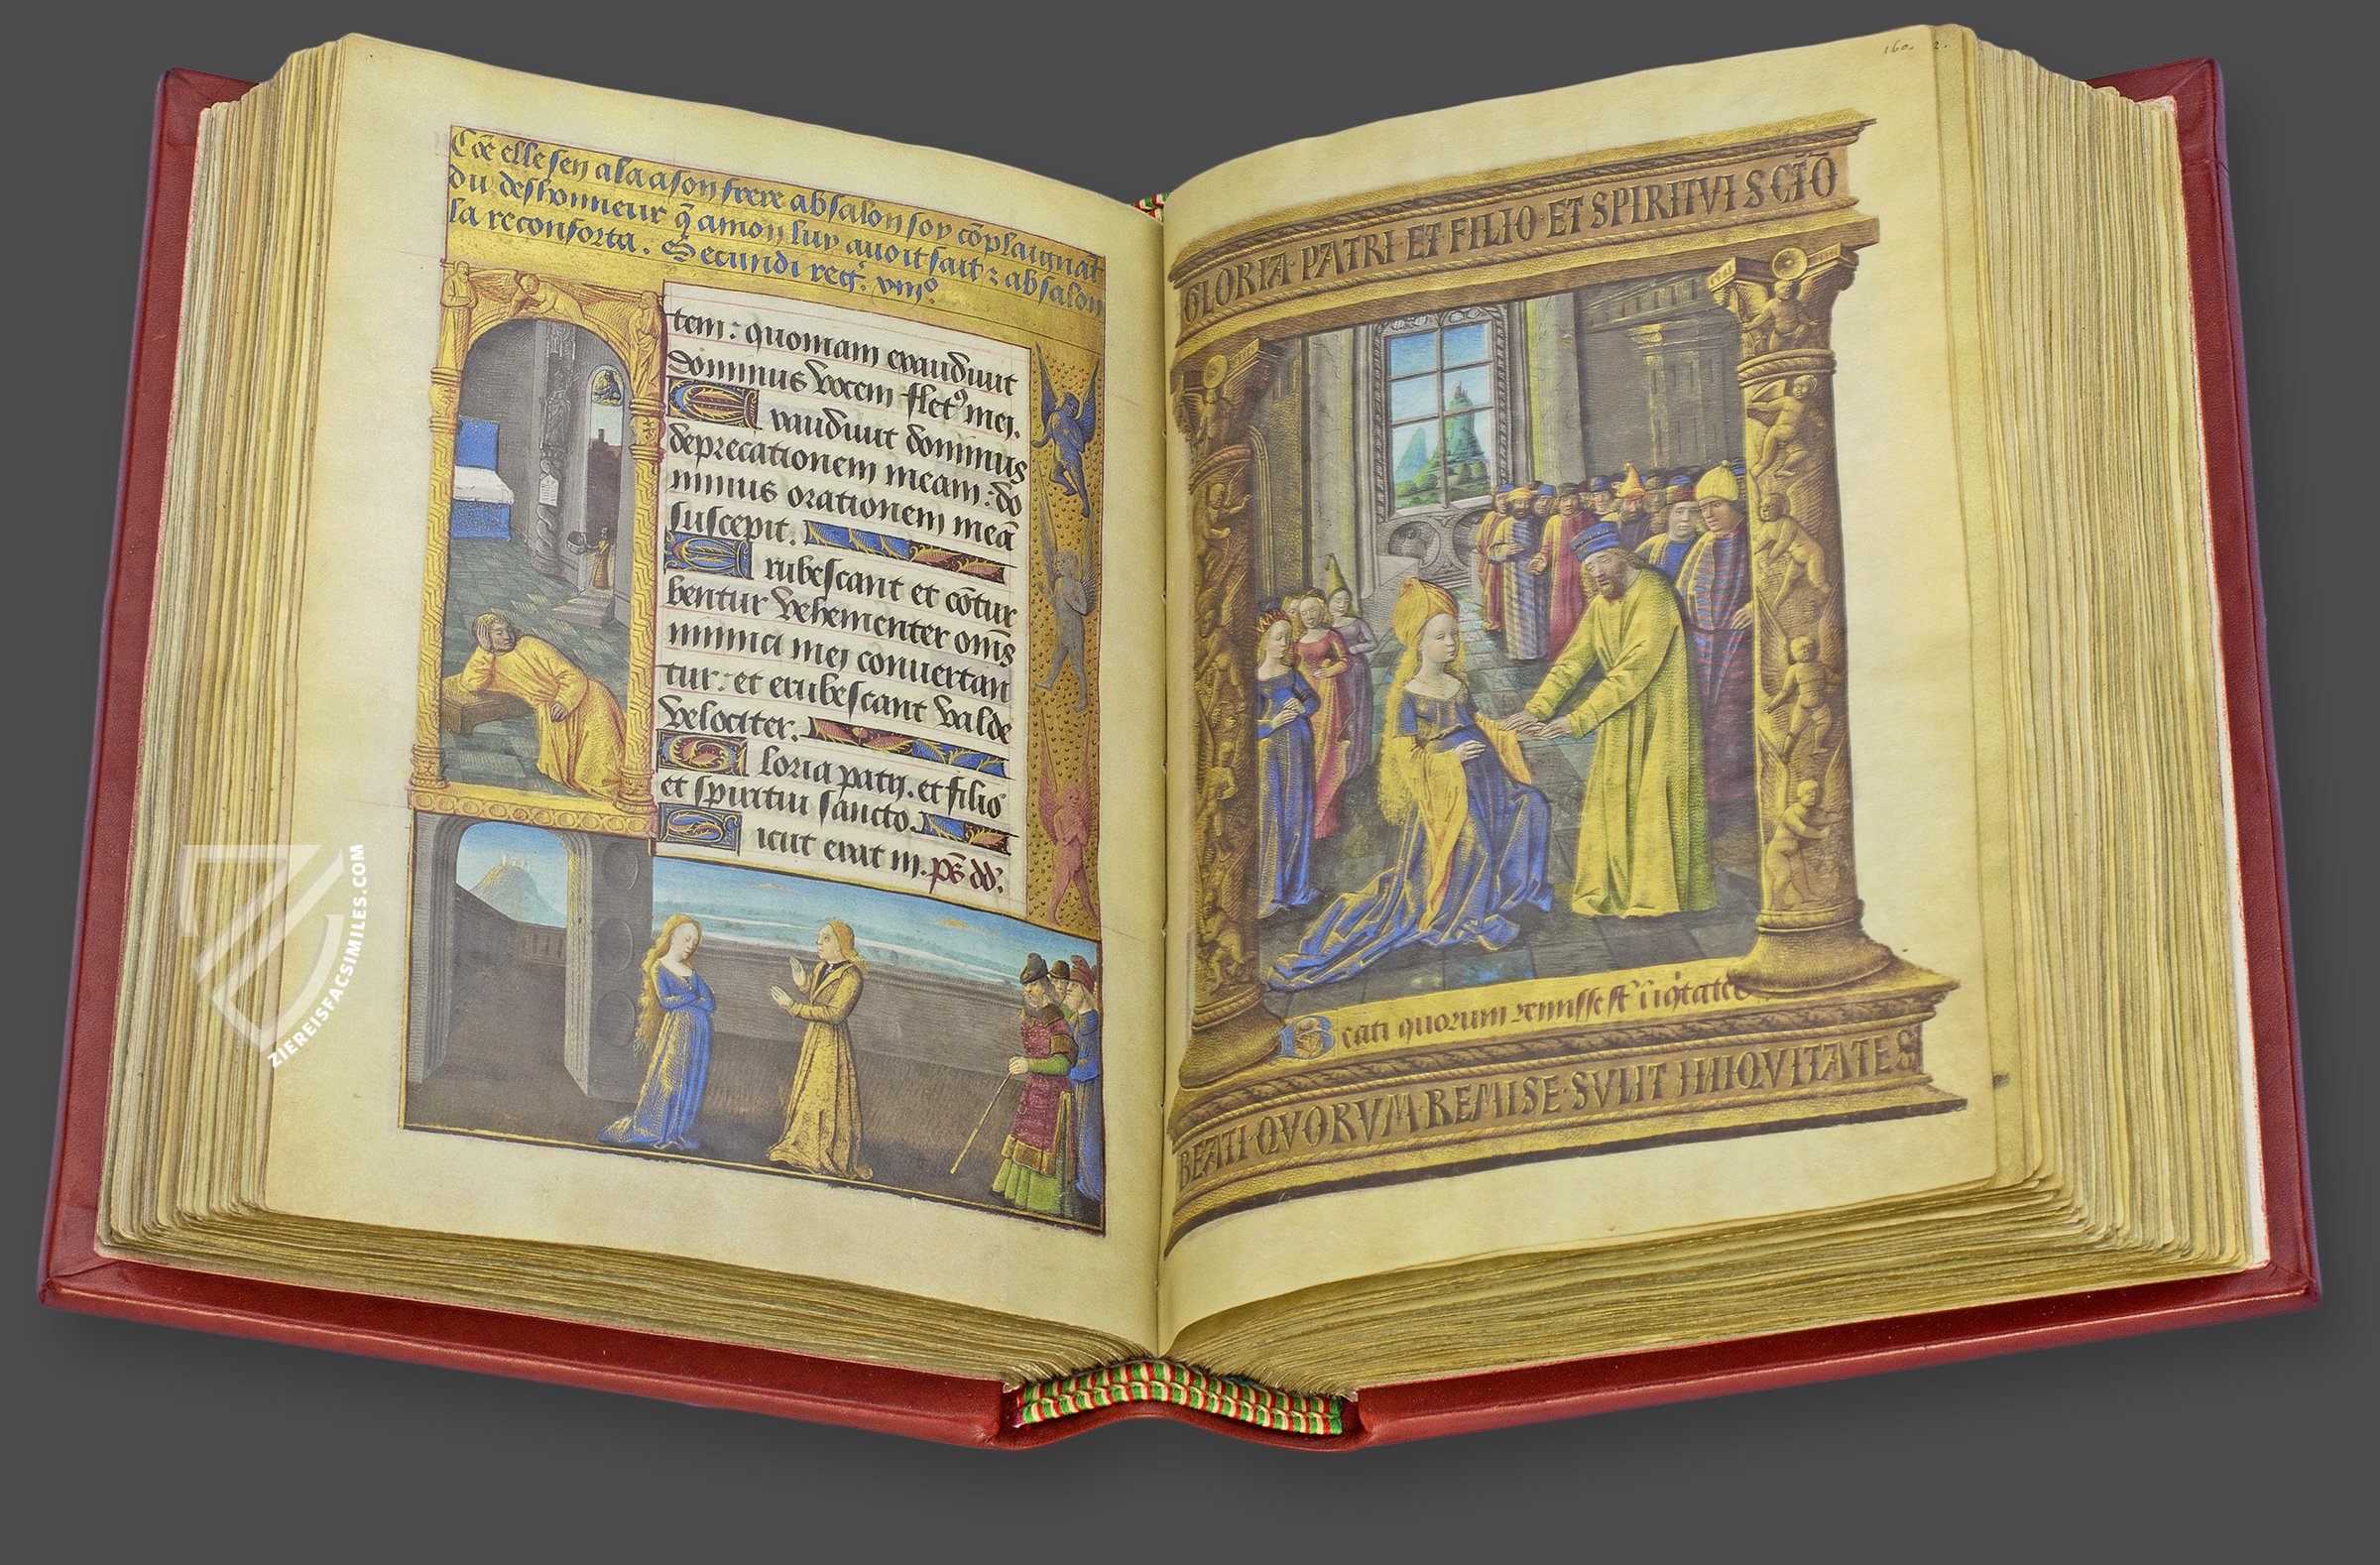 Cōe elle sen ala a son frere absalon soy cōplaignāt
du desbonneur q̄ amon luy auoit fait ⁊ absalon
la reconforta. Secundi reg̃. viiiº.
tem: quoniam exaudiuit
dominus vocem flet⁹ mei.
Exaudiuit dominus
deprecationem meam: do
minus orationem meā
suscepit.
Erubescant et cōtur
bentur vehementer om̄s
inimici mei conuertan
tur: et erubescant valde
velociter.
Gloria patri. et filio
et spiritui sancto.
Sicut erat in. p̄s dd̄.
160. 2.
GLORIA·PATRI·ET FILIO·ET SPIRITVI SCTŌ
Beati quorum remisse st̄ iiq̄tates
BEATI·QVORVM·REMISE·SVNT INIQVITATES
ZIEREISFACSIMILES.COM